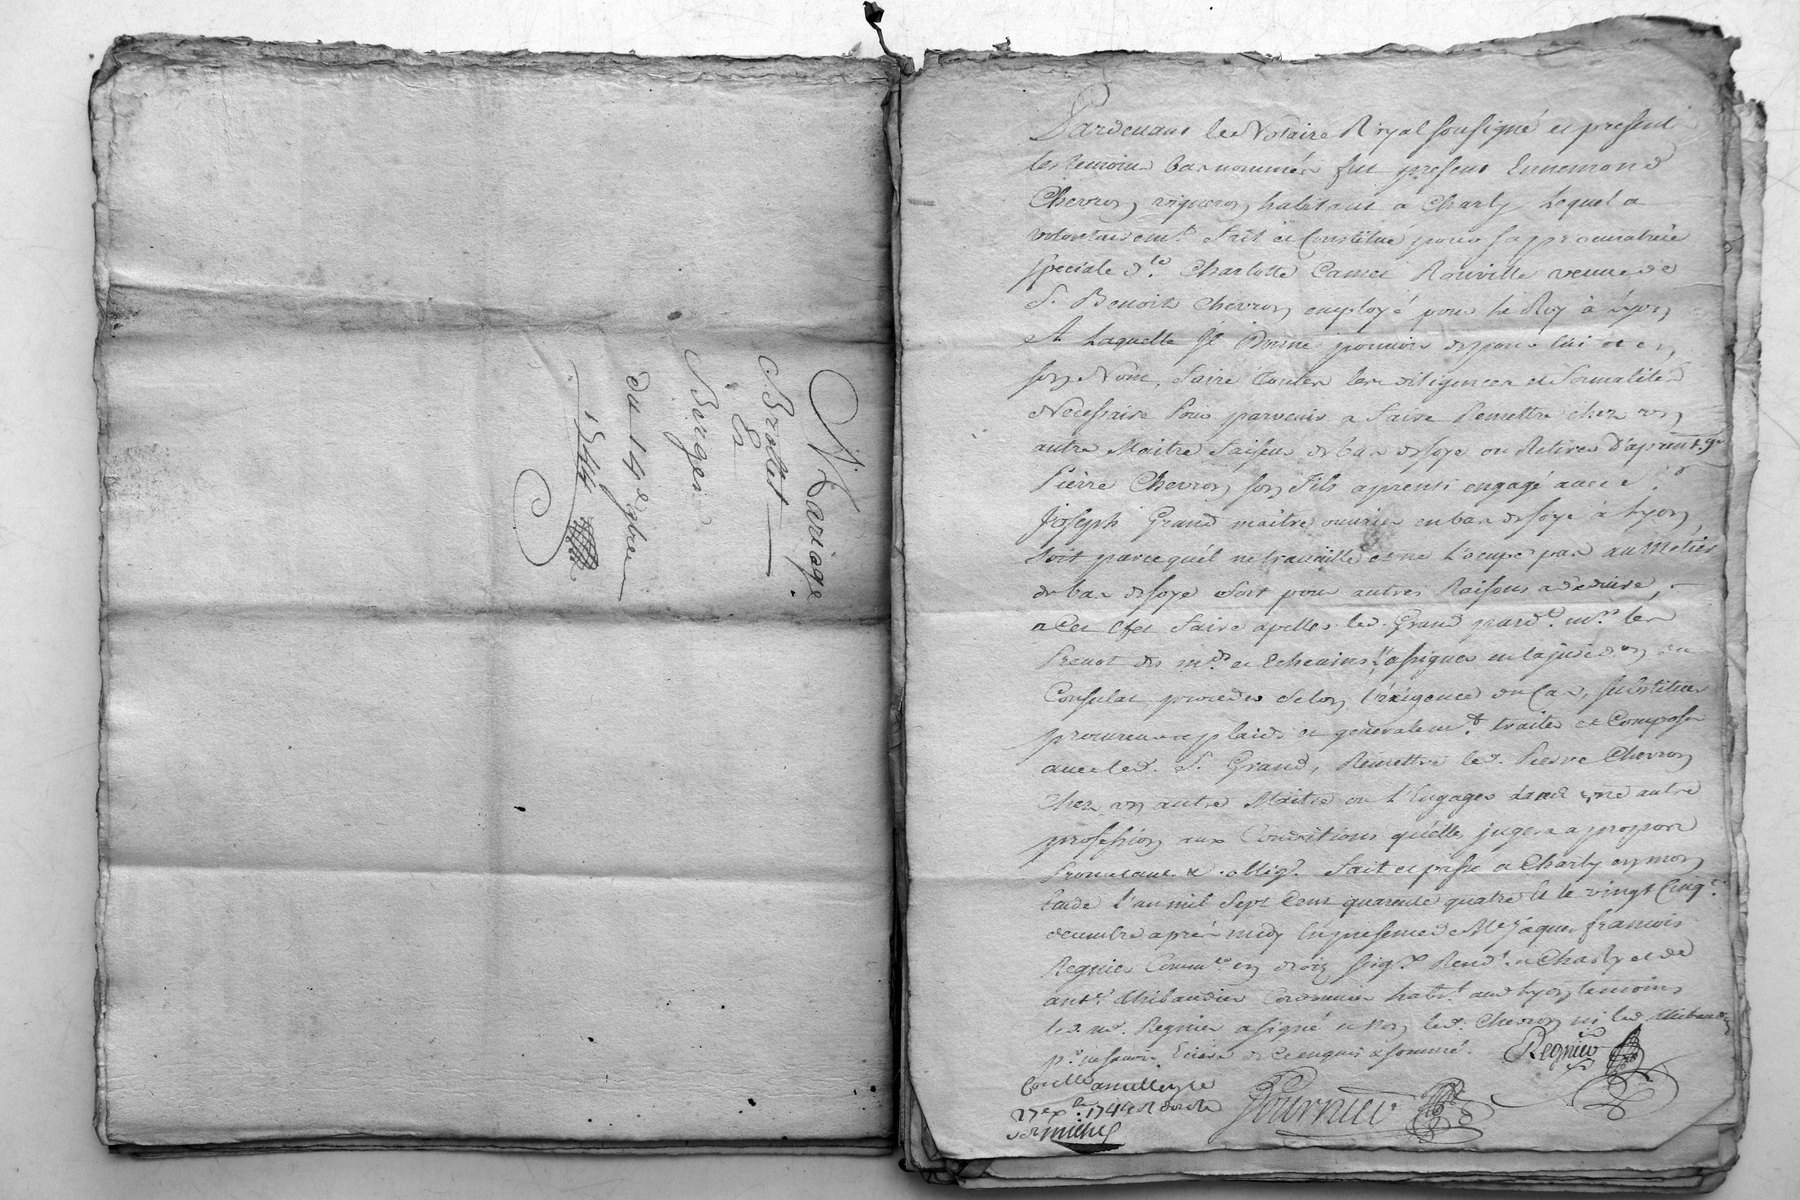 Mariage
Brottet
&
Berger
du 14 xbre
1744
Pardevant le Notaire Royal soussigné et present
les temoins bas nommés fut present Ennemond
Chevron vigneron habitant a Charly Lequel a
volontairem.t fait et Constitue pour sa procuratrice
speciale d.lle Charlotte Camet Rouville veuve de
S. Benoit Chevron employé pour le Roy à Lyon
A Laquelle Il Donne pouvoir de pour lui et en
son Nom, faire toutes les diligences et formalités
Necessaire pour parvenir a faire Remettre chez un
autre Maitre faiseur de bas de soye ou Retirer d'aprent.ge
Pierre Chevron son fils aprenti engagé avec s.r
Joseph Grand maitre ouvrier en bas de soye à Lyon
soit parcequ'il ne travaille et ne L'ocupe pas au Métier
de bas de soye soit pour autres Raisons a deduire,
a Cet efet faire apeller led. Grand pard.t m.rs les
Prevot des m.ds et Echevins assigner en la jurid.on du
Consulat proceder selon l'exigence du Cas, substituer
procureur a plaids et generalem.t traiter et Composer
avec led. S. Grand, Remettre led. Pierre Chevron
Chez un autre Maitre ou L'Engager dans une autre
profession aux Conditions qu'elle jugera a propos
Promettant & oblig. Fait et passé a Charly en mon
Etude l'an mil sept Cent quarente quatre & le vingt Cinq
decembre aprés midy En presence de Me Jaques françois
Regnier Comm.re en droits seig.x Resid.t a Charly et de
ant.e thibaudier Cordonnier habit.t aud. Lyon temoins
led. m.e Regnier a signé et non led. Chevron ni led. thibaudier
p.r ne savoir Ecrire de Ce enquis & sommé. Regnier
Con.llé a millery le
27e x.bre 1744 R douze
sols michel Fournier